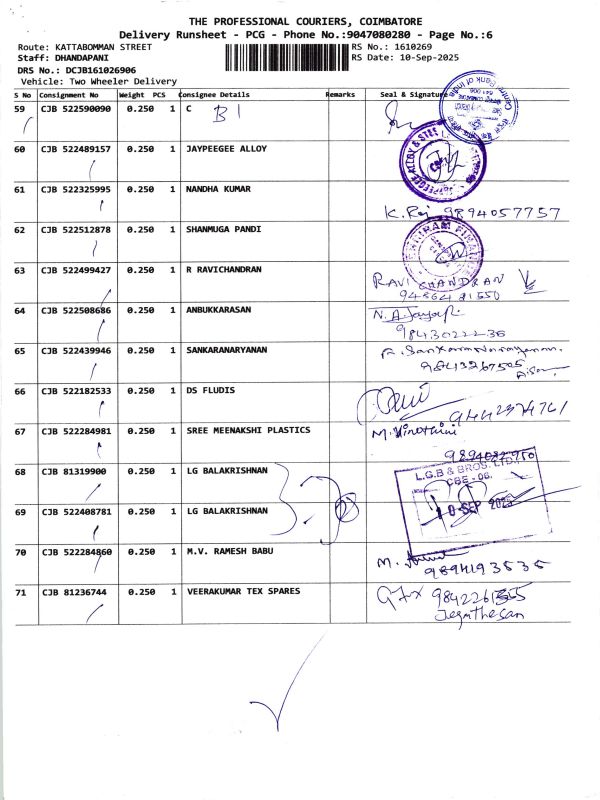 THE PROFESSIONAL COURIERS, COIMBATORE
Delivery Runsheet - PCG - Phone No.:9047080280 - Page No.:6
Route: KATTABOMMAN STREET RS No.: 1610269
Staff: DHANDAPANI RS Date: 10-Sep-2025
DRS No.: DCJB161026906
Vehicle: Two Wheeler Delivery
S No Consignment No Weight PCS Consignee Details Remarks Seal & Signature
59 CJB 522590090 0.250 1 C B 1
60 CJB 522489157 0.250 1 JAYPEEGEE ALLOY
61 CJB 522325995 0.250 1 NANDHA KUMAR
K. Raj 9894057757
62 CJB 522512878 0.250 1 SHANMUGA PANDI
63 CJB 522499427 0.250 1 R RAVICHANDRAN
RAVI CHANDRAN
9486481550
64 CJB 522508686 0.250 1 ANBUKKARASAN
9843022236
65 CJB 522439946 0.250 1 SANKARANARYANAN
9843267505
66 CJB 522182533 0.250 1 DS FLUDIS
67 CJB 522284981 0.250 1 SREE MEENAKSHI PLASTICS
68 CJB 81319900 0.250 1 LG BALAKRISHNAN
L.G.B & BROS. LTD.,
CBE - 06.
69 CJB 522408781 0.250 1 LG BALAKRISHNAN
SEP 2025
70 CJB 522284860 0.250 1 M.V. RAMESH BABU
9894193535
71 CJB 81236744 0.250 1 VEERAKUMAR TEX SPARES
Jegnthesan